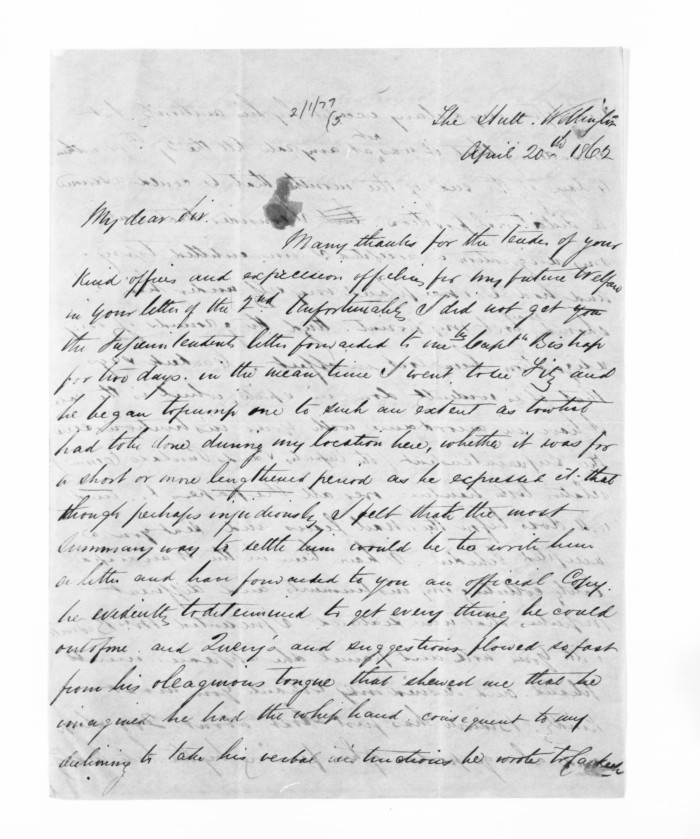 2/1/77
(5
The Hutt. Wellington
April 20th 1862
My dear Sir.
Many thanks for the tender of your
kind offices and expression of feeling for my future Welfare
in your letter of the 2nd Unfortunately I did not get
the Superintendents letter forwarded to me by Captn Bishop
for two days. in the mean time I went to see Fitz and
he began to pump me to such an extent as to what
had to be done during my location here, whether it was for
a short or more lengthened period as he expressed it. that
though perhaps injudiciously I felt that the most
Summary way to settle him would be to write him
a letter and have forwarded to you an official Copy.
he evidently determined to get every thing he could
out of me. and Query's and suggestions flowed so fast
from his oleagmous tongue that shewed me that he
imagined he had the whip hand consequent to my
declining to take his verbal instructions he wrote to